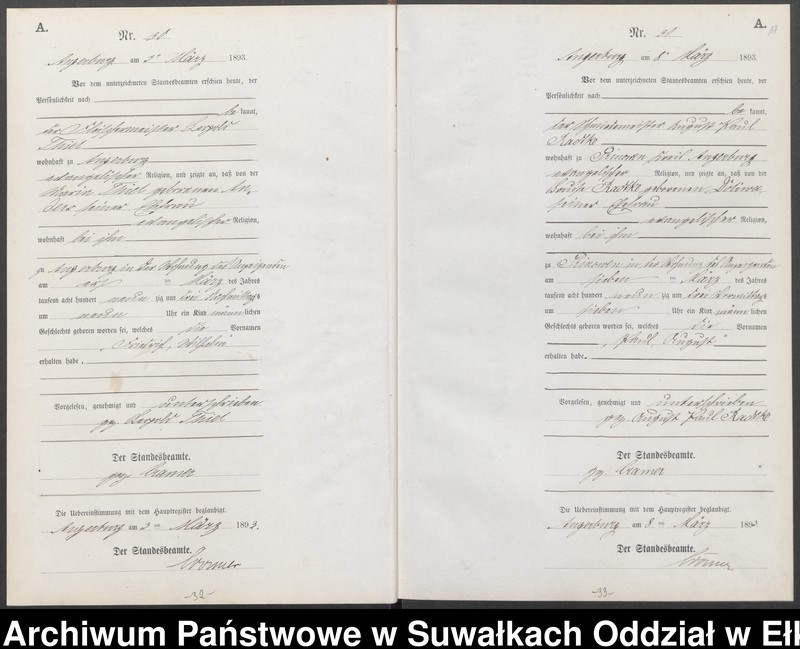 A.
Nr. 30.
Angerburg am 3 März 1893.
Vor dem unterzeichneten Standesbeamten erschien heute, der
Persönlichkeit nach
be kannt,
der Leopold
Thiel
wohnhaft zu Angerburg
evangelischer Religion, und zeigte an, daß von der
Maria Thiel geborenen
seiner Ehefrau
evangelischer Religion,
wohnhaft bei ihm
zu Angerburg in der Wohnung des Anzeigenden
am März des Jahres
tausend acht hundert neun zig und drei Nachmittags
um neun Uhr ein Kind männlichen
Geschlechts geboren worden sei, welches die Vornamen
Friedrich Wilhelm
erhalten habe.
Vorgelesen, genehmigt und unterschrieben
gez. Leopold Thiel
Der Standesbeamte.
gez. Cramer
Die Uebereinstimmung mit dem Hauptregister beglaubigt.
Angerburg am 3 ten März 1893.
Der Standesbeamte.
Cramer
-32-
A.
Nr. 31.
Angerburg am 8 März 1893.
Vor dem unterzeichneten Standesbeamten erschien heute, der
Persönlichkeit nach
be kannt,
der Schmiedemeister August Paul
Radtke
wohnhaft zu Angerburg
evangelischer Religion, und zeigte an, daß von der
Louise Radtke geborenen
seiner Ehefrau
evangelischer Religion,
wohnhaft bei ihm
zu in der Wohnung des Anzeigenden
am sieben ten März des Jahres
tausend acht hundert neun zig und drei Vormittags
um sieben Uhr ein Kind männlichen
Geschlechts geboren worden sei, welches die Vornamen
"Paul August"
erhalten habe.
Vorgelesen, genehmigt und unterschrieben
gez. August Paul Radtke
Der Standesbeamte.
gez. Cramer
Die Uebereinstimmung mit dem Hauptregister beglaubigt.
Angerburg am 8 ten März 1893
Der Standesbeamte.
Cramer
-33-
Archiwum Państwowe w Suwałkach Oddział w Ełk